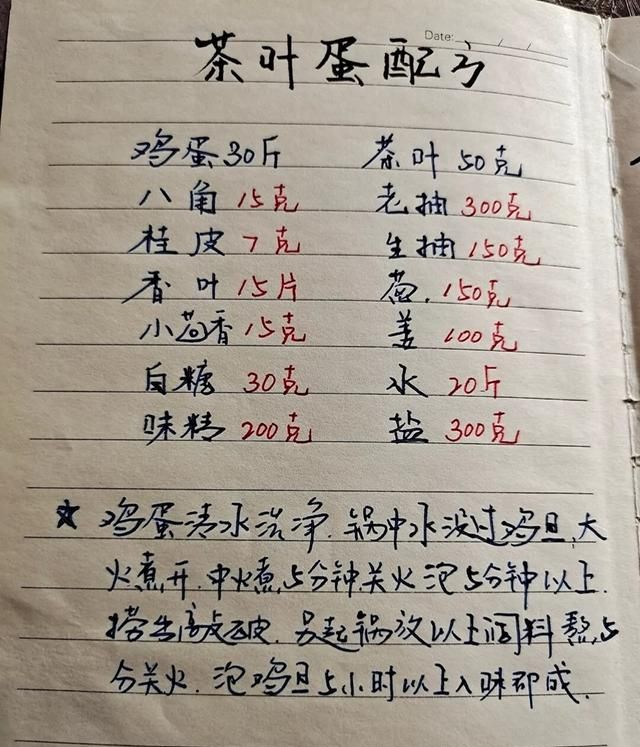 Date: / /
茶叶蛋配方
鸡蛋30斤 茶叶 50克
八角 15克 老抽 300克
桂皮 7克 生抽 150克
香叶 15片 葱. 150克
小茴香 15克 姜 100克
白糖 30克 水 20斤
味精 200克 盐 300克
★ 鸡蛋清水洗净.锅中水没过鸡旦,大
火煮开.中火煮5分钟,关火泡5分钟以上.
捞出敲破皮.另起锅放以上调料熬5
分关火.泡鸡旦5小时以上入味即成.